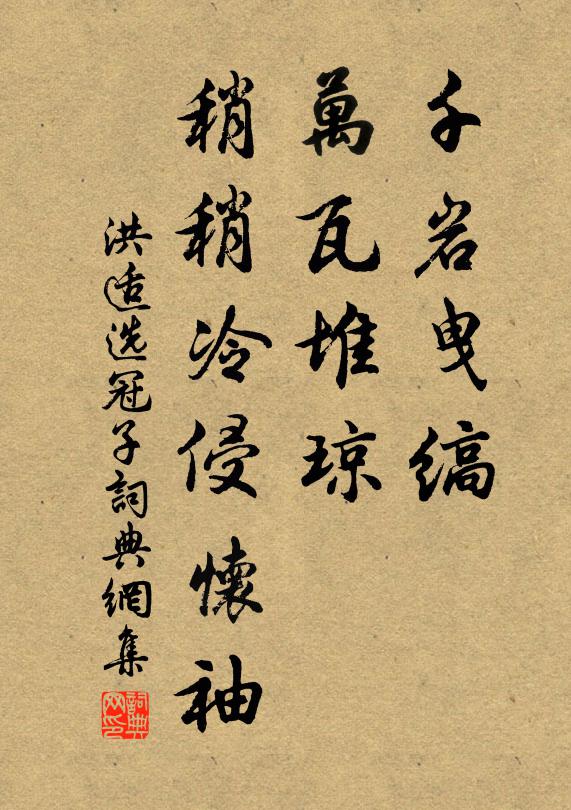 千岩曳缟
萬瓦堆琼
稍稍冷侵懷袖
洪适选冠子詞典網集
詞典网印